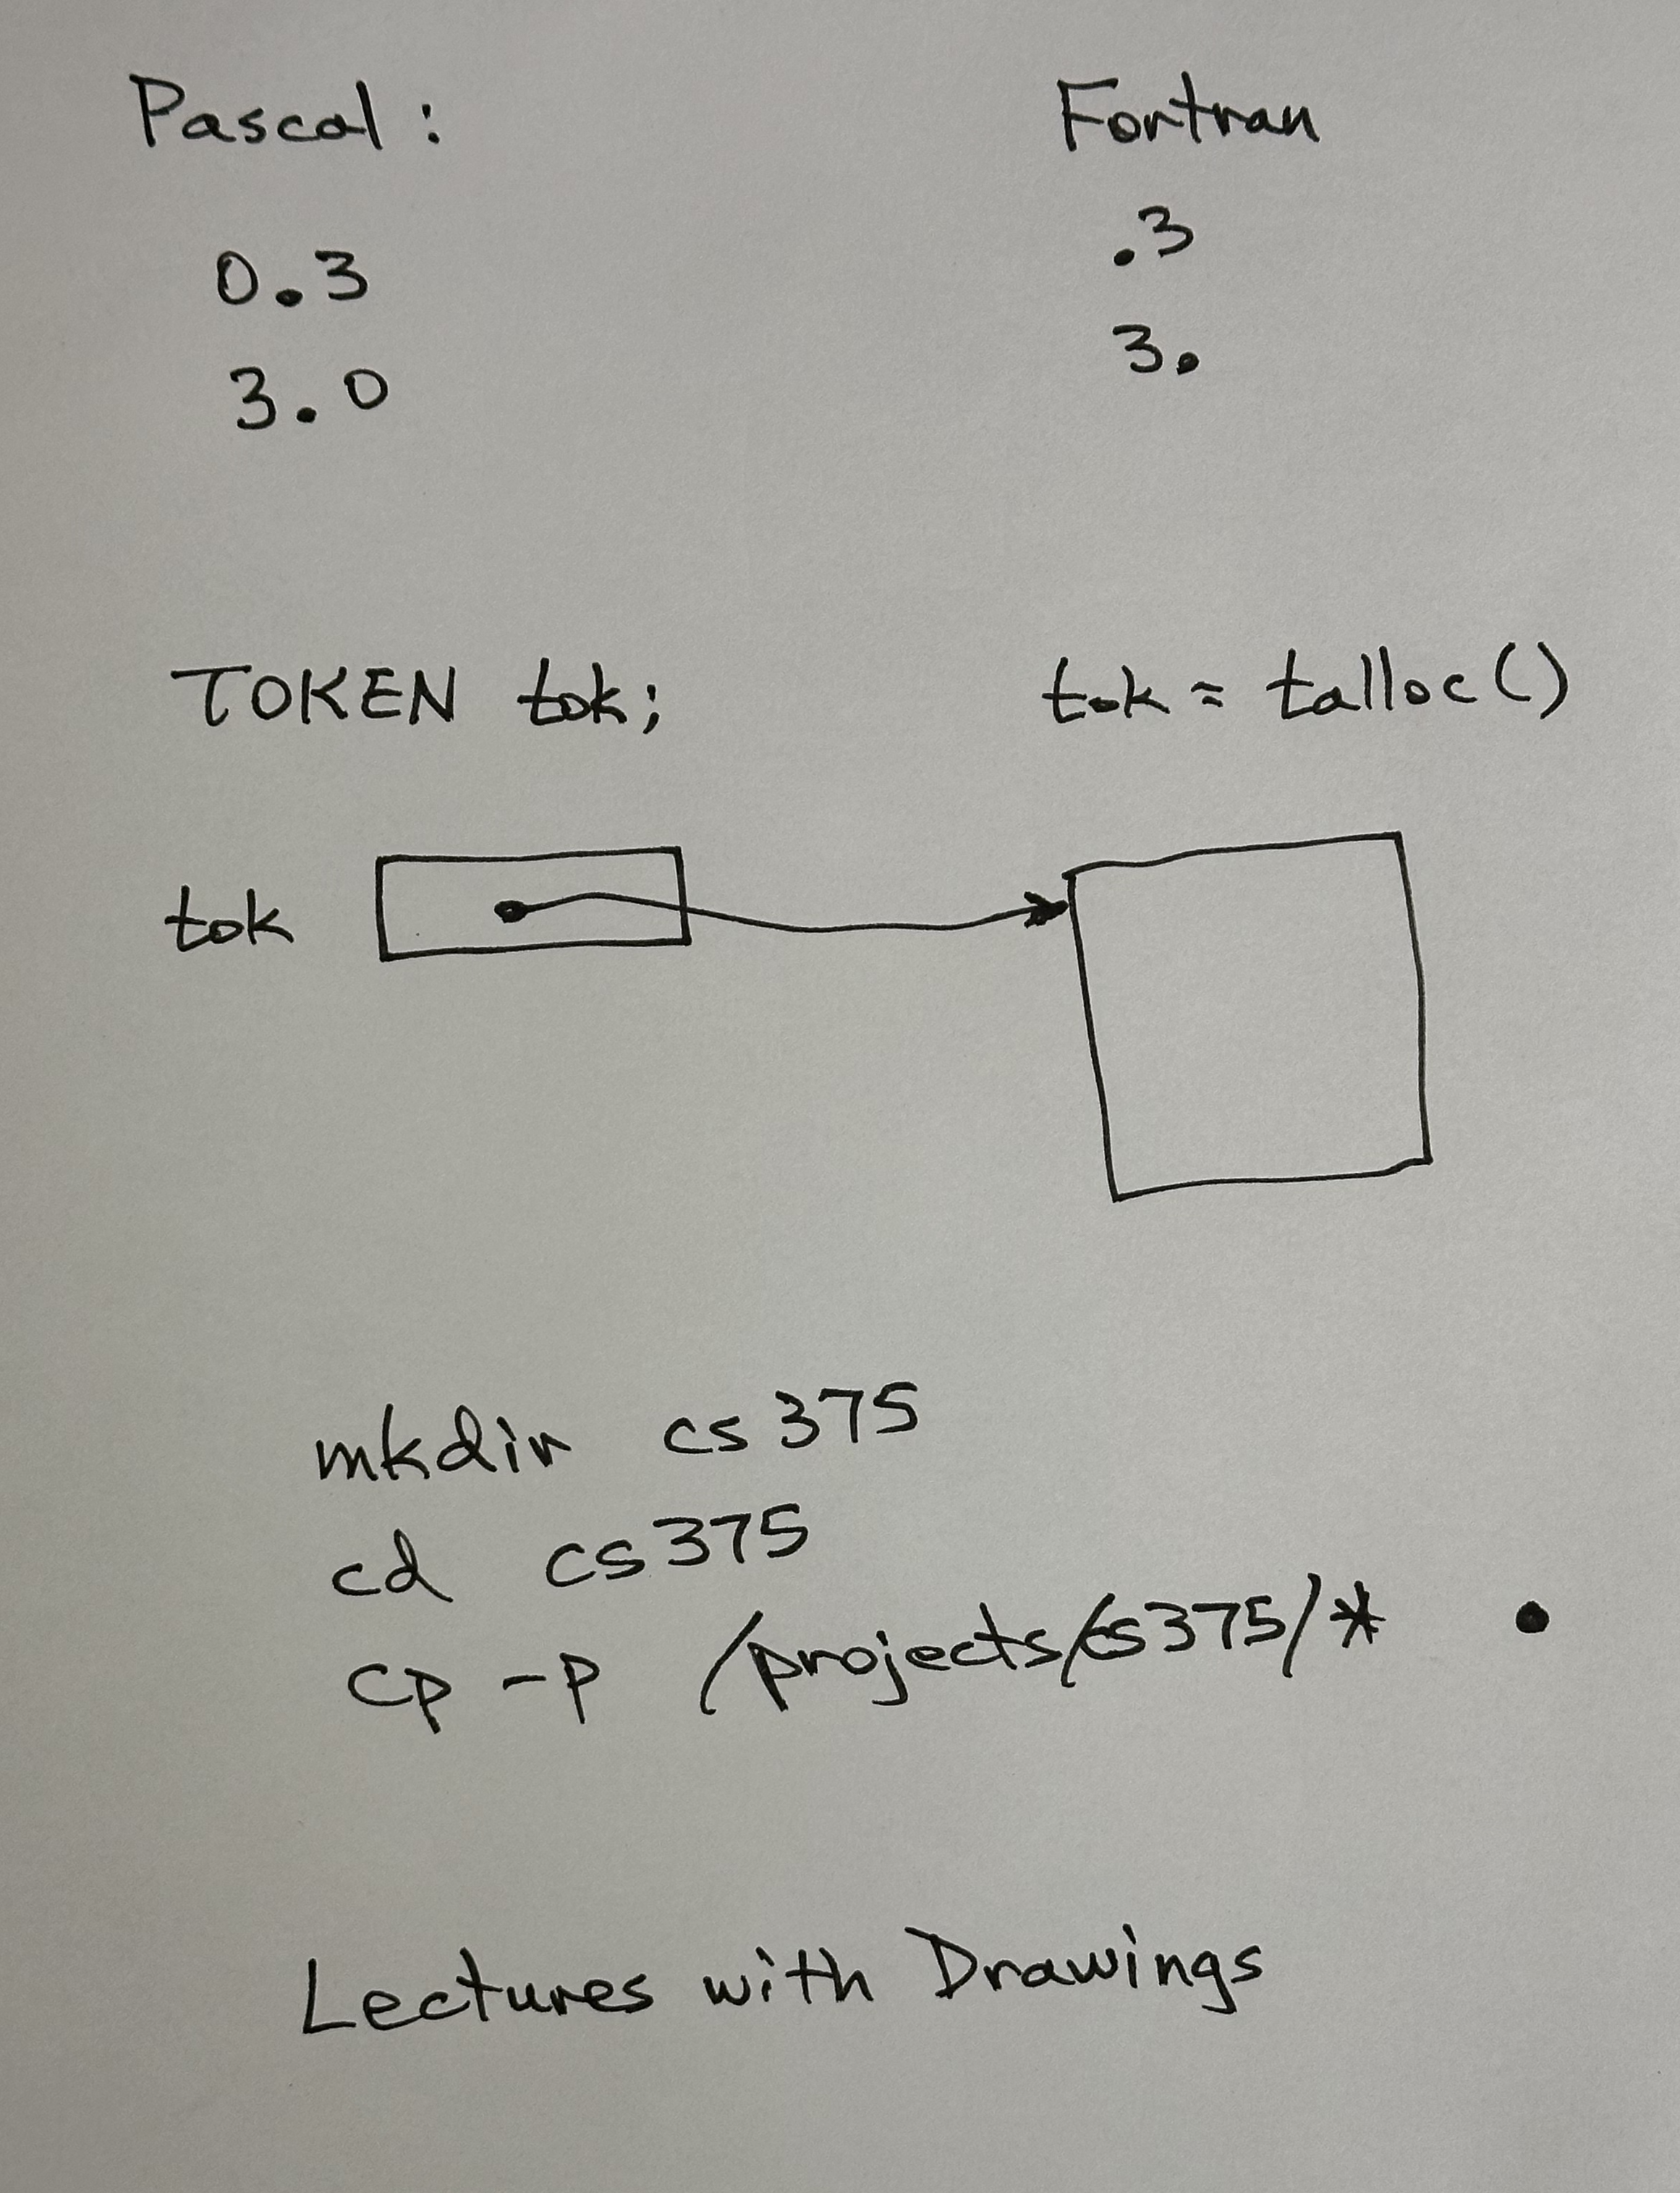 Pascal : Fortran
0.3 .3
3.0 3.
TOKEN tok; tok = talloc()
tok
mkdir cs375
cd cs375
cp -p /projects/cs375/* .
Lectures with Drawings